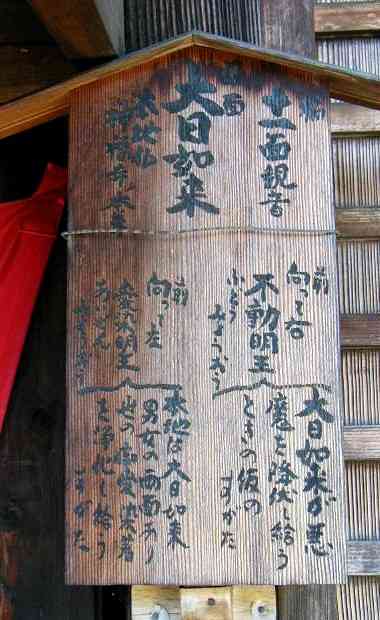 脇
十一面観音
正面
大日如来
本地仏
前
向って右
不動明王
ふどう
みょうおう
大日如来が悪
魔を降伏し給う
ときの仮の
すがた
前
向って左
愛染明王
あいぜん
みょうおう
本地は大日如来
男女の両面あり
世の恋愛染着
を浄化し給う
すがた